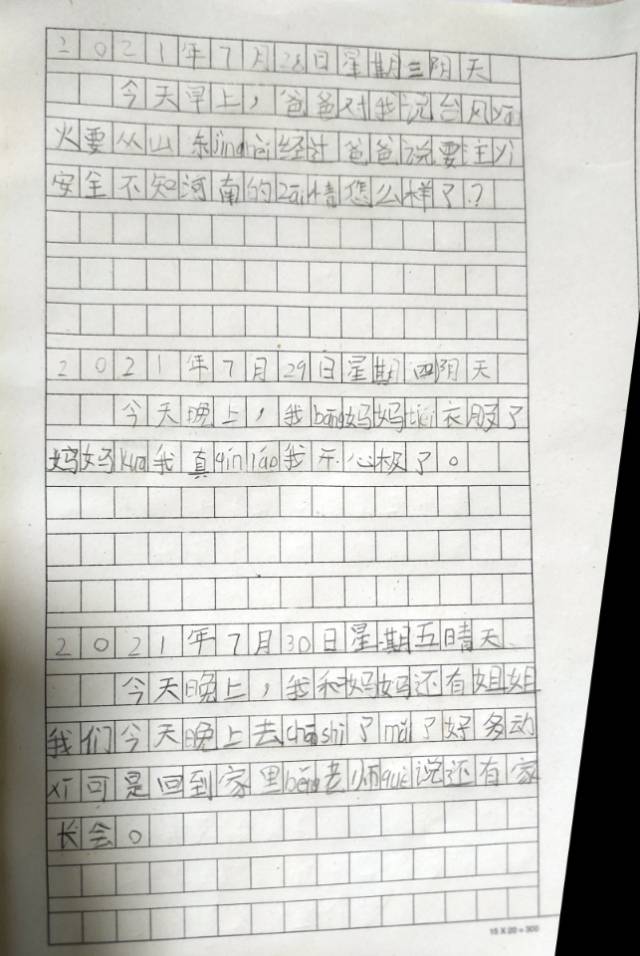 2021年7月28日星期三阴天
今天早上，爸爸对我说台风yān
火要从山东jinghèi经过爸爸说要主yì
安全不知河南的zāi情怎么样了？
2021年7月29日星期四阴天
今天晚上，我bāng妈妈dié衣服了
妈妈kuā我真qín láo我开心极了。
2021年7月30日星期五晴天
今天晚上，我和妈妈还有姐姐
我们今天晚上去chāo shì了mǎi了好多动
xī可是回到家里bān老师què说还有家
长会。
15 X 20 = 300